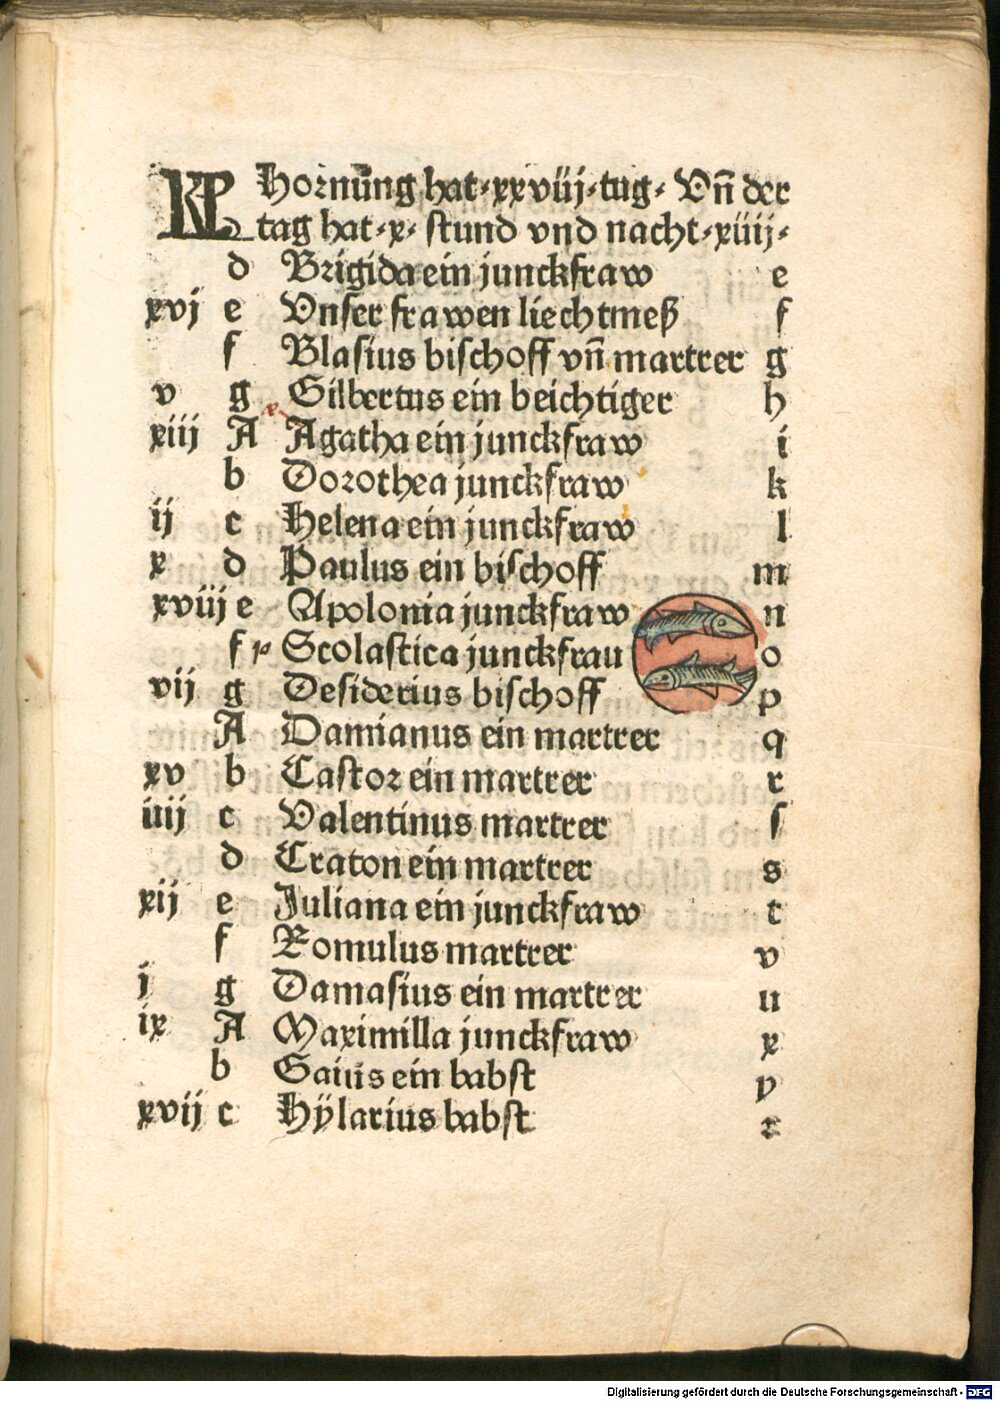 KL Hornūng hat·xxviij·tag· Vn̄ der
tag hat·x· ſtund vnd nacht·xiiij·
d Brigida ein junckfraw e
xvj e Vnſer frawen liechtmeß f
f Blaſius biſchoff vn̄ martrer g
v g Gilbertus ein beichtiger h
xiij A Agatha ein junckfraw i
b Dorothea junckfraw k
ij c Helena ein junckfraw l
x d Paulus ein biſchoff m
xviij e Apolonia junckfraw n
f Scolaſtica junckfrau o
vij g Deſiderius biſchoff p
A Damianus ein martrer q
xv b Caſtor ein martrer r
iiij c Valentinus martrer ſ
d Craton ein martrer s
xij e Juliana ein junckfraw t
f Romulus martrer v
j g Damaſius ein martrer u
ix A Maximilla junckfraw x
b Gaius ein babſt y
xvij c Hÿlarius babſt z
Digitalisierung gefördert durch die Deutsche Forschungsgemeinschaft - DFG